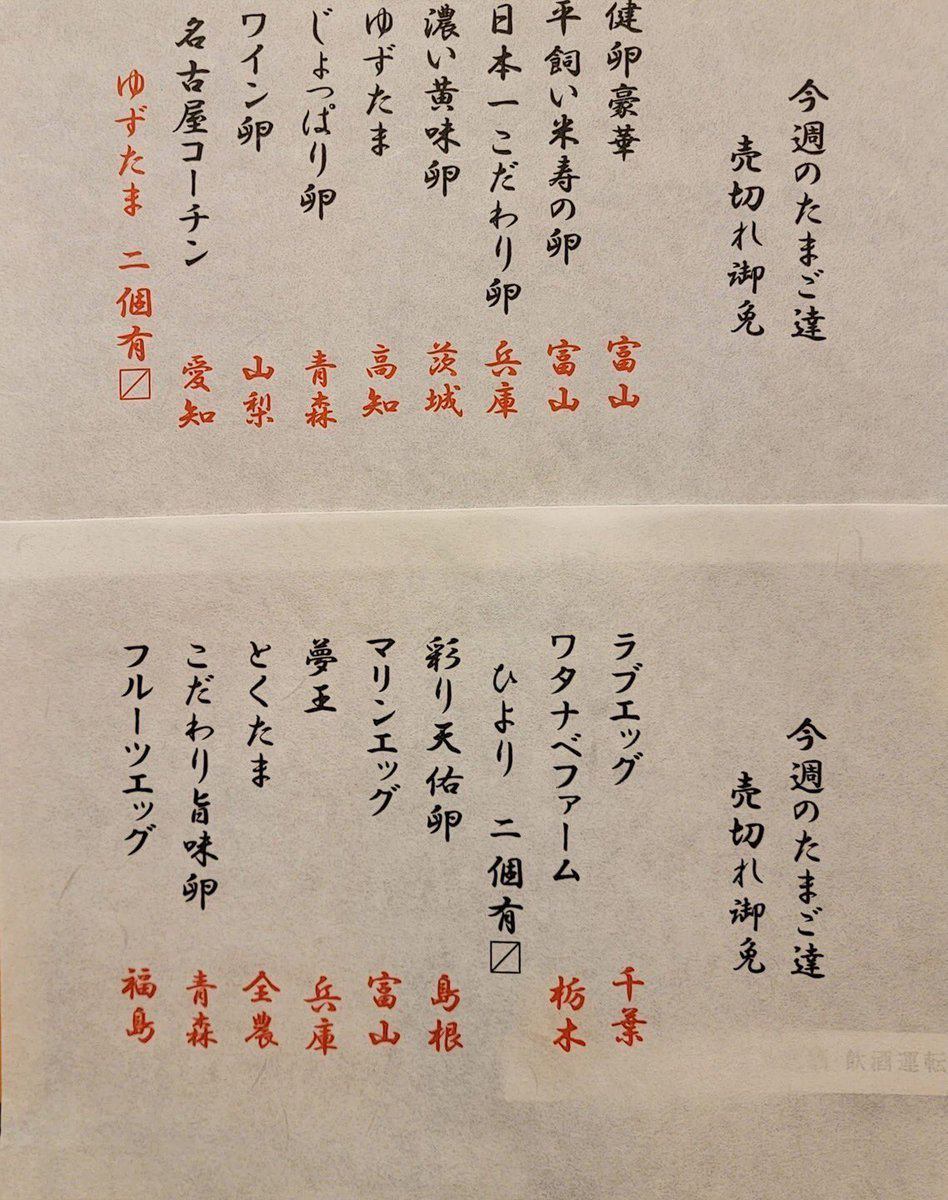 今週のたまご達
売切れ御免
健卵豪華 富山
平飼い米寿の卵 富山
日本一こだわり卵 兵庫
濃い黄味卵 茨城
ゆずたま 高知
じょっぱり卵 青森
ワイン卵 山梨
名古屋コーチン 愛知
ゆずたま 二個有〼
今週のたまご達
売切れ御免
ラブエッグ 千葉
ワタナベファーム 栃木
ひより 二個有〼
彩り天佑卵 島根
マリンエッグ 富山
夢王 兵庫
とくたま 全農
こだわり旨味卵 青森
フルーツエッグ 福島
飲酒運転